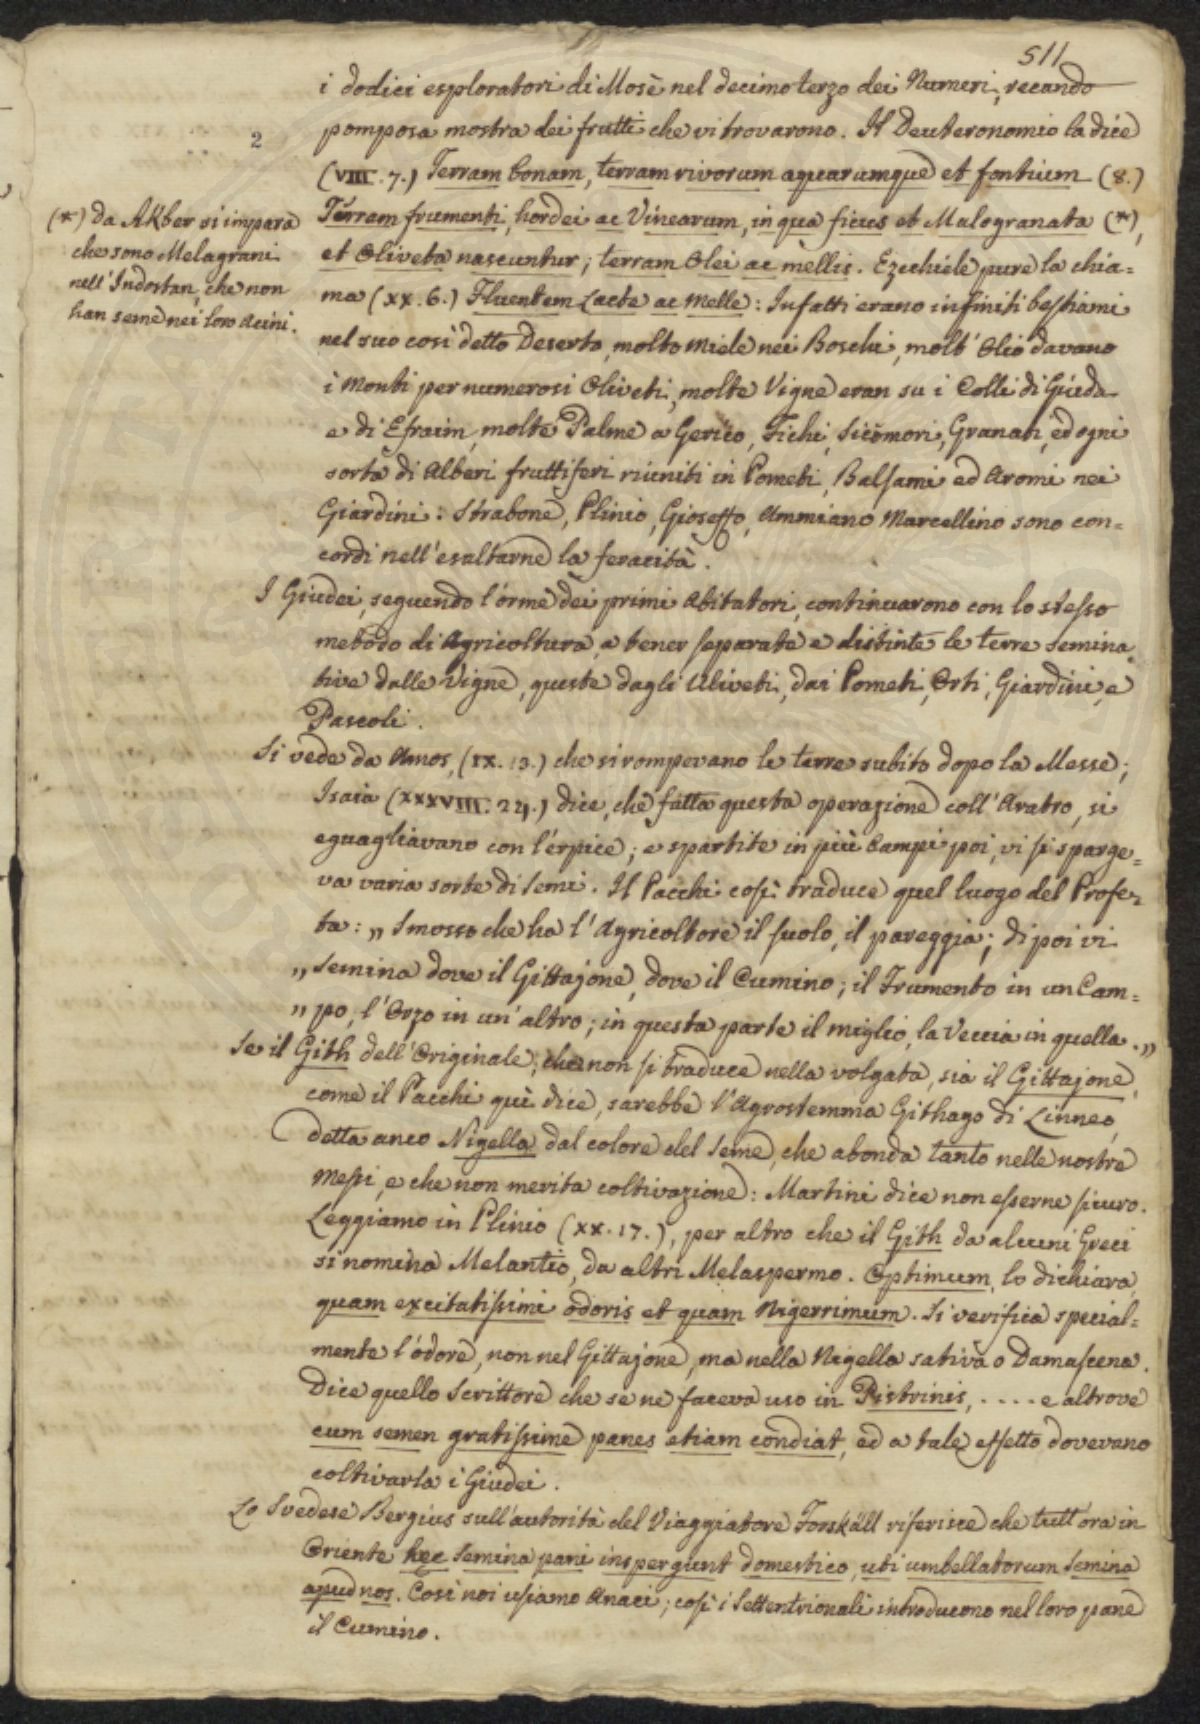 511
i dodici esploratori di Mosè nel decimo terzo dei Numeri, recando
pomposa mostra dei frutti che vi trovarono. Il Deuteronomio la dice
2
(VIII. 7.) Terram bonam, terram rivorum aquarumque et fontium (8.)
Terram frumenti, hordei ac Vinearum, in qua ficus et Malogranata (*),
et Oliveta nascuntur; terram Olei ac mellis. Ezechiele pure la chia=
ma (XX. 6.) Fluentem Lacte ac Melle: Infatti erano infiniti bestiami
nel suo così detto Deserto, molto Miele nei Boschi, molt' Olio davano
i Monti per numerosi Oliveti, molte Vigne eran su i Colli di Giuda
e di Efraim, molte Palme a Gerico, Fichi, Sicomori, Granati, ed ogni
sorta di Alberi fruttiferi riuniti in Pometi, Balsami ed Aromi nei
Giardini: Strabone, Plinio, Gioseffo, Ammiano Marcellino sono con=
cordi nell'esaltarne la feracità.
(*) da Akber si impara
che sono Melagrani
nell'Indostan, che non
han seme nei loro Acini.
I Giudei, seguendo l'orme dei primi Abitatori, continuarono con lo stesso
metodo di Agricoltura, a tener separate e distinte le terre semina
tive dalle Vigne, queste dagli Uliveti, dai Pometi, Orti, Giardini, e
Pascoli.
Si vede da Amos, (IX. 13.) che si rompevano le terre subito dopo la Messe;
Isaia (XXXVIII. 24.) dice, che fatta questa operazione coll'Aratro, si
eguagliavano con l'erpice; e spartite in più Campi poi, vi si sparge=
va varia sorte di semi. Il Pacchi così traduce quel luogo del Profe=
ta: „ Smosso che ha l'Agricoltore il suolo, il pareggia; di poi vi
„ semina dove il Gittajone, dove il Cumino; il Frumento in un Cam=
„ po, l'Orzo in un'altro; in questa parte il miglio, la Veccia in quella.„
Se il Gith dell'Originale, che non si traduce nella volgata, sia il Gittajone,
come il Pacchi quì dice, sarebbe l'Agrostemma Githago di Linneo,
detta anco Nigella dal colore del seme, che abonda tanto nelle nostre
Messi, e che non merita coltivazione: Martini dice non esserne sicuro.
Leggiamo in Plinio (XX. 17.), per altro che il Gith da alcuni Greci
si nomina Melantio, da altri Melaspermo. Optimum, lo dichiara,
quam excitatissimi odoris et quam Nigerrimum. Si verifica special=
mente l'odore, non nel Gittajone, ma nella Nigella sativa o Damascena.
Dice quello Scrittore che se ne faceva uso in Pistrinis, .... e altrove
cum semen gratissime panes etiam condiat, ed a tale effetto dovevano
coltivarla i Giudei.
Lo Svedese Bergius sull'autorità del Viaggiatore Forskåll riferisce che tutt'ora in
Oriente hęc semina pani inspergunt domestico, uti umbellatorum semina
apud nos. Così noi usiamo Anaci; così i Settentrionali introducono nel loro pane
il Cumino.